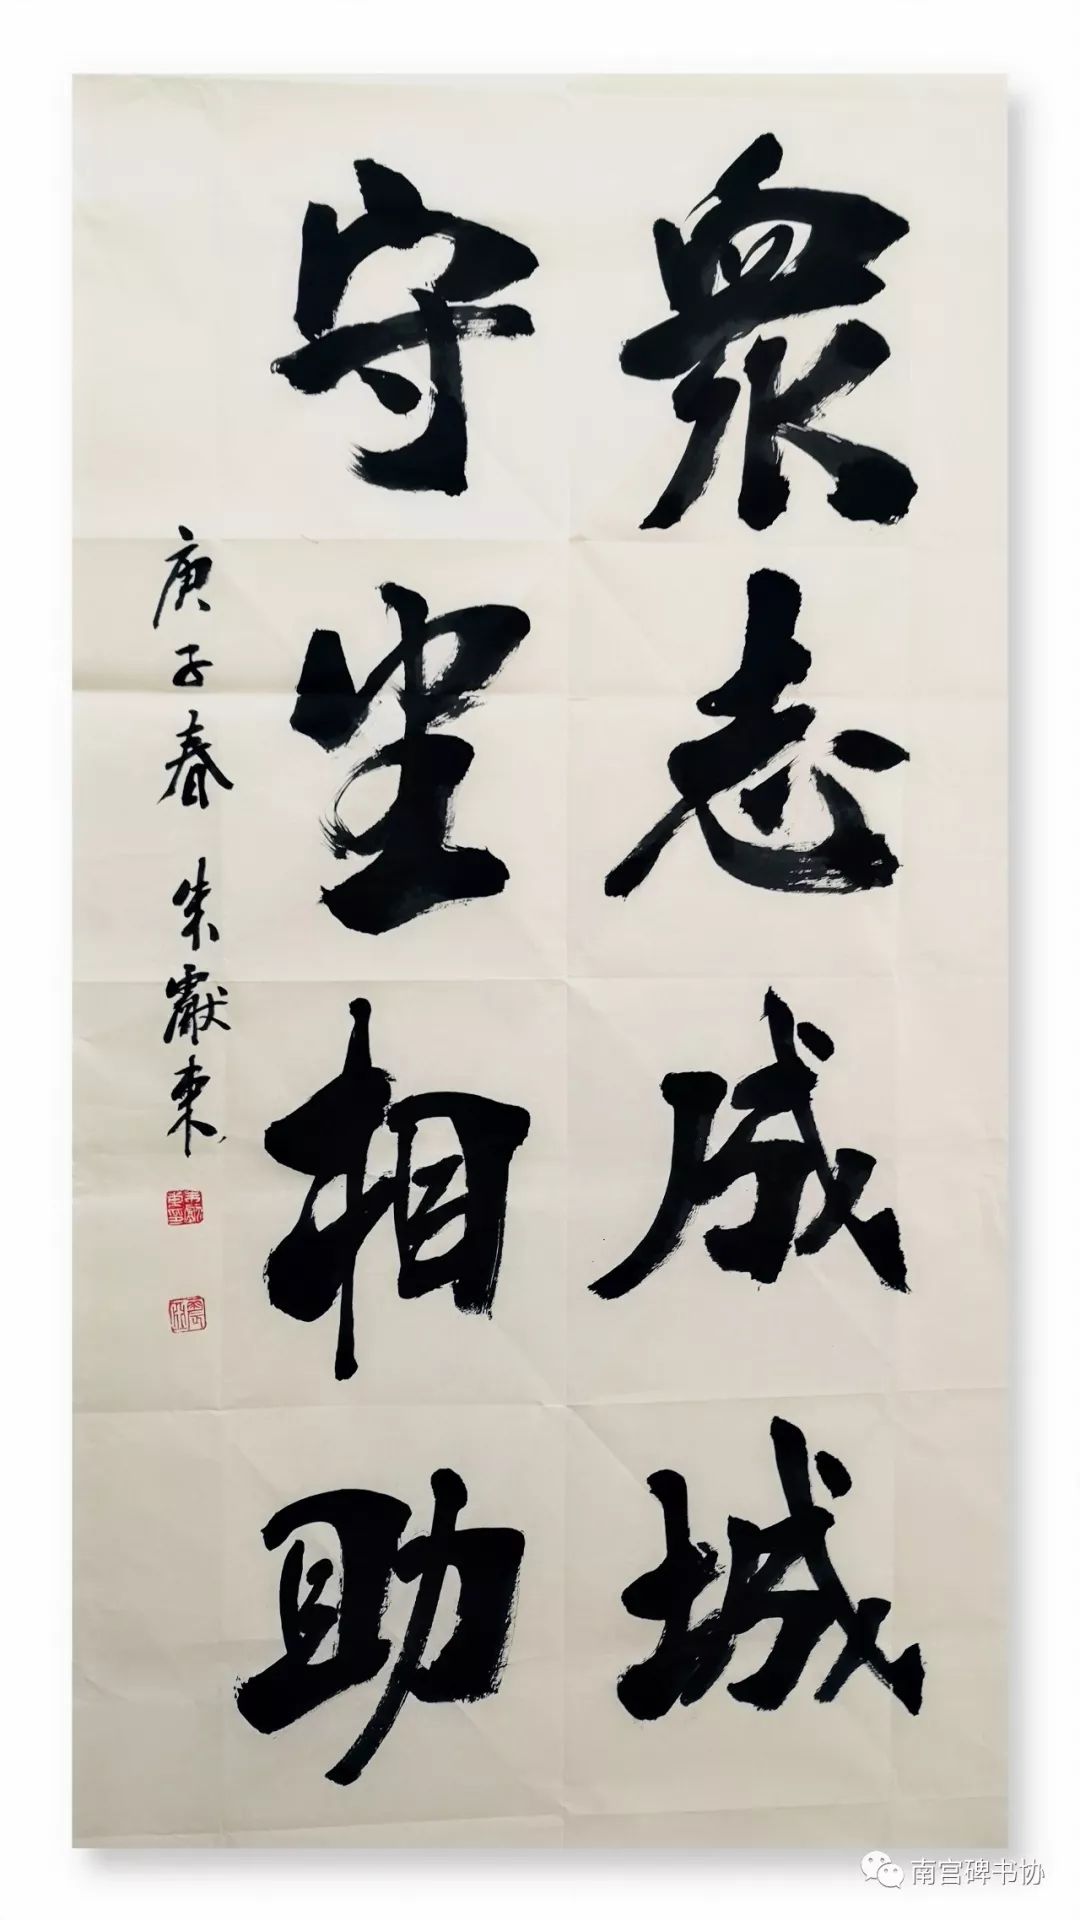 眾志成城
守望相助
庚子春 朱獻東
南宫碑书协